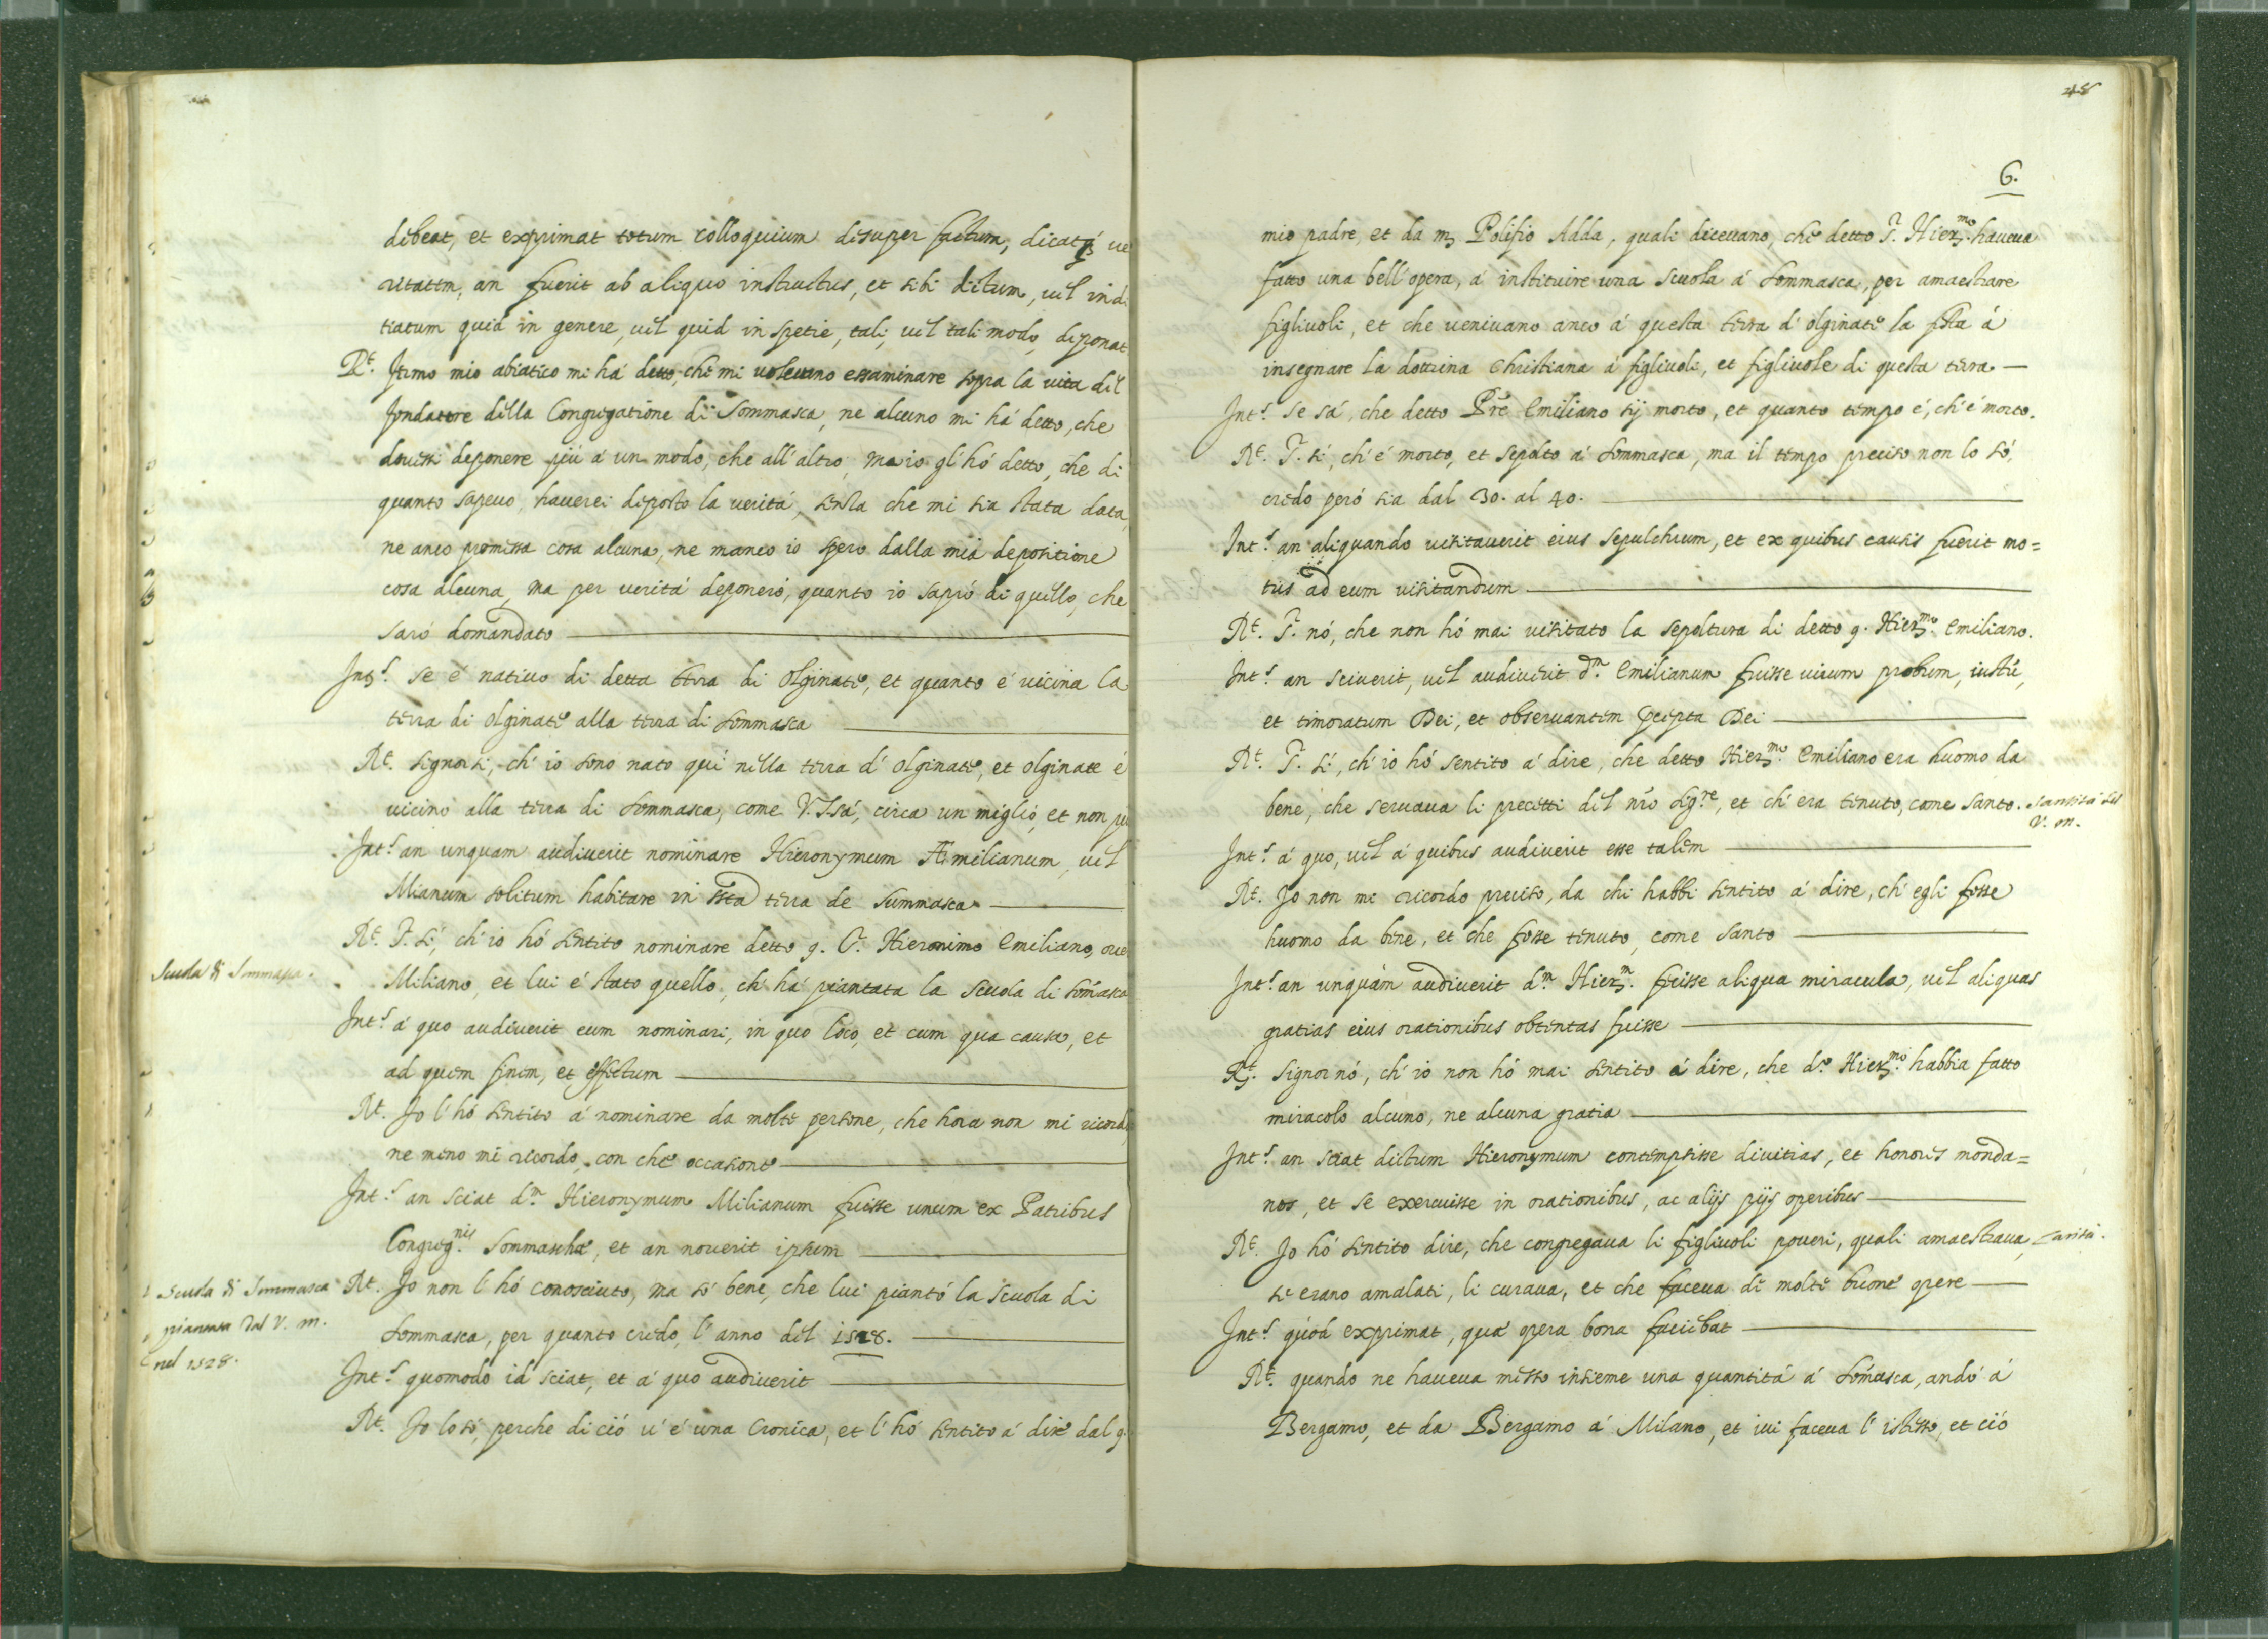 debeat, et exprimat totum colloquium desuper factum, dicatq́ ve
ritatem, an fuerit ab aliquo instructus, et sibi dictum, vel indi
tiatum quid in genere, vel quid in spetie, tali, vel tali modo, deponat
Rt. Jtimo mio abiatico mi há detto, che mi volevano essaminare sopra la vita del
fondattore della Congregatione di Sommasca, ne alcuno mi há detto, che
dovessi deponere piú á un modo, che all'altro, ma io gl'hó detto, che di
quanto sapevo, haverei deposto la veritá, senza che mi sia stata data,
ne anco promissa cosa alcuna, ne manco io spero dalla mia depositione
cosa alcuna, ma per veritá deponeró, quanto io sapró di quello, che
saró domandato
Jnts. se é nativo di detta terra di Olginate, et quanto é vicina la
terra di Olginate alla terra di Sommasca
Rt. signor si, ch'io sono nato quí nella terra d'Olginate, et Olginate é
vicino alla terra di Sommasca, come V.S. sá, circa un miglio, et non piú
Jnts. an unquam audiverit nominare Hieronymum Æmilianum, vel
Mianum solitum habitare in ista terra de Summasca
Rt. S. sí, ch'io hó sentito nominare detto q. P. Hieronimo Emiliano, ove
Scuola di Sommasca.
Miliano, et lui é stato quello, ch'há piantata la scuola di Som̃asca
Jnts. á quo audiverit eum nominari, in quo loco, et cum qua causa, et
ad quem finem, et effectum
Rt. Jo l'hó sentito á nominare da molte persone, che hora non mi ricordo,
ne meno mi ricordo, con che occasione
Jnts. an sciat dm. Hieronymum Milianum fuisse unum ex Patribus
Congreg.nis Sommaschæ, et an noverit ipsum
Scuola di Sommasca
piantata dal V. m.
nel 1528.
Rt. Jo non l'hó conosciuto, ma só bene, che lui piantó la scuola di
Sommasca, per quanto credo, l'anno del 1528.
Jnts. quomodo id sciat, et á quo audiverit
Rt. Jo lo só, perche di ció v'é una Cronica, et l'hó sentito á dire dal q.
48
6.
mio padre, et da mr Polisio Adda, quali dicevano, che detto P. Hier.mo haveva
fatto una bell'opera, á instituire una scuola á Sommasca, per amaestrare
figlivoli, et che venivano anco á questa terra d'Olginate la festa á
insegnare la dottrina Christiana á figlivoli, et figlivole di questa terra
Jnts. se sá, che detto Pre Emiliano sij morto, et quanto tempo é, ch'é morto.
Rt. S. sí, ch'é morto, et sepolto á Sommasca, ma il tempo preciso non lo só,
credo peró sia dal 30. al 40.
Jnts. an aliquando visitaverit eius sepulchrum, et ex quibus causis fuerit mo=
tus ad eum visitandum
Rt. S. nó, che non hó mai visitato la sepoltura di detto q. Hier.mo Emiliano.
Jnts. an sciverit, vel audiverit dm. Emilianum fuisse virum probum, iustũ,
et timoratum Dei, et observantem p̃cepta Dei
Rt. S. sí, ch'io hó sentito á dire, che detto Hier.mo Emiliano era huomo da
bene, che servava li precetti del nr̃o Sig.re, et ch'era tenuto, come santo.
santitá del
V. m.
Jnts. á quo, vel á quibus audiverit esse talem
Rt. Jo non mi ricordo preciso, da chi habbi sentito á dire, ch'egli fosse
huomo da bene, et che fosse tenuto, come santo
Jnts. an unquam audiverit dm. Hier.m fecisse aliqua miracula, vel aliquas
gratias eius orationibus obtentas fuisse
Rt. Signor nó, ch'io non hó mai sentito á dire, che do. Hier.mo habbia fatto
miracolo alcuno, ne alcuna gratia
Jnts. an sciat dictum Hieronymum contempsisse divitias, et honores monda=
nos, et se exercuisse in orationibus, ac alijs pijs operibus
Rt. Jo hó sentito dire, che congregava li figlivoli poveri, quali amaestrava,
caritá.
se erano amalati, li curava, et che faceva di molte buone opere
Jnts. quod exprimat, quæ opera bona faciebat
Rt. quando ne haveva messo insieme una quantitá á Som̃asca, andó á
Bergamo, et da Bergamo á Milano, et ivi faceva l'istesso, et ció